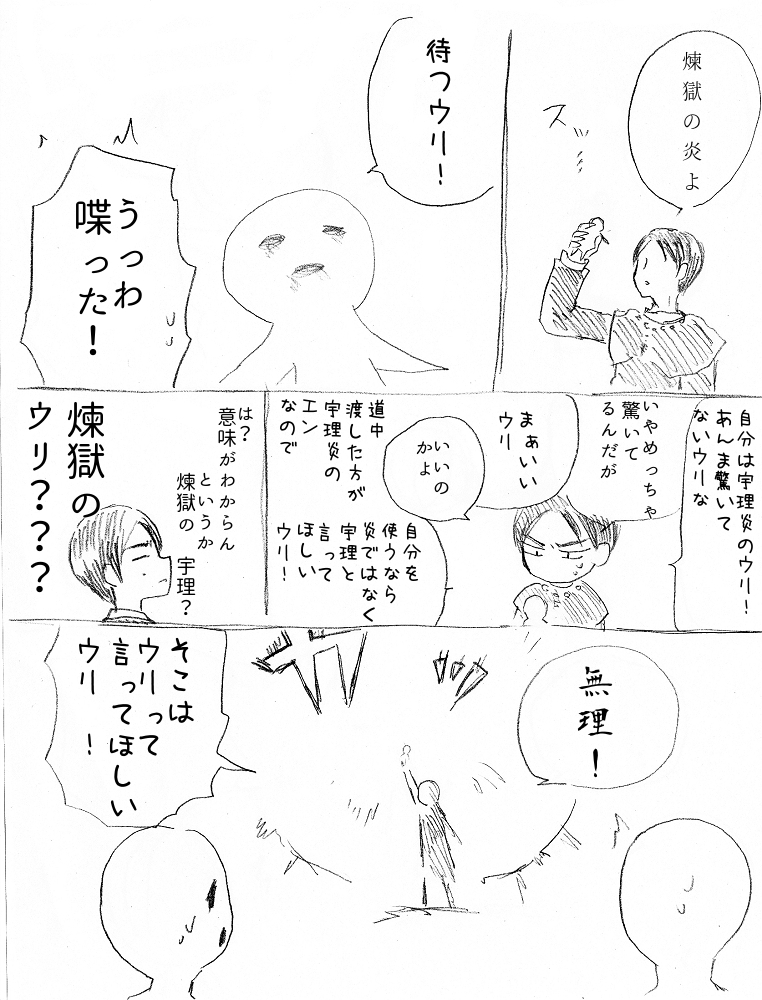 煉獄の炎よ
スッ
待つウリ！
うっわ
喋った！
自分は宇理炎のウリ！
あんま驚いて
ないウリな
いやめっちゃ
驚いて
るんだが
まぁいい
ウリ
いいの
かよ
道中
渡した方が
宇理炎の
エン
なので
自分を
使うなら
炎ではなく
宇理と
言って
ほしい
ウリ！
は？
意味がわからん
というか
煉獄の　宇理？
煉獄の
ウリ？？？
無理！
そこは
ウリって
言ってほしい
ウリ　！